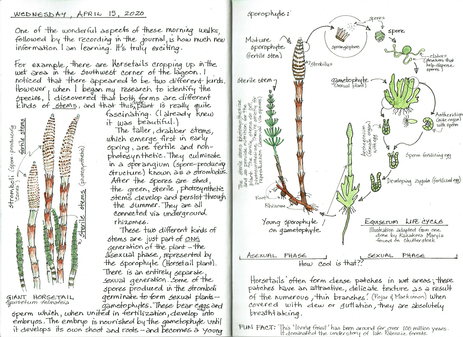 WEDNESDAY, APRIL 15, 2020
One of the wonderful aspects of these morning walks,
followed by the recording in the journal, is how much new
information I am learning. It's truly exciting.
For example, there are Horsetails cropping up in the
wet area in the southwest corner of the lagoon. I
noticed that there appeared to be two different kinds.
However, when I began my research to identify the
species, I discovered that both forms are different
kinds of stems, and that this plant is really quite
fascinating. (I already knew
it was beautiful.)
The taller, drabber stems,
which emerge first in early
spring, are fertile and non-
photosynthetic. They culminate
in a sporangium (spore-producing
structure) known as a strobilus.
After the spores are shed,
the green, sterile, photosynthetic
stems develop and persist through
the summer. They are all
connected via underground
rhizomes.
These two different kinds of
stems are just part of ONE
generation of the plant – the
asexual phase, represented by
the sporophyte (Horsetail plant).
There is an entirely separate,
sexual generation. Some of the
spores produced in the strobili
germinate to form sexual plants–
gametophytes. These bear eggs and
sperm which, when united in fertilization, develop into
embryos. The embryo is nourished by the gametophyte until
it develops its own shoot and roots – and becomes a young
strobili (spore-producing
cones)
fertile stems
sterile stems
(photosynthetic)
GIANT HORSETAIL
Equisetum telmateia
sporophyte.
Mature
sporophyte
(fertile stem)
(strobilus)
Sporangiophore
spores
spore
elaters
Sterile stem
gametophyte
(sexual plant)
Antheridium
(male organ)
sperm
Sperm fertilizing egg
Developing zygote (fertilized egg)
Rhizome
Young sporophyte
on gametophyte
EQUISETUM LIFE CYCLE
Illustration adapted from one
done by Kazakova Maryia
found on Shutterstock
ASEXUAL PHASE
SEXUAL PHASE
How cool is that??
Horsetails often form dense patches in wet areas; these
patches have an attractive, delicate texture as a result
of the numerous, thin branches. (Pojar & MacKinnon) When
covered with dew or guttation, they are absolutely
breathtaking.
FUN FACT: This "living fossil" has been around for over 100 million years.
It dominated the understory of late Paleozoic forests.